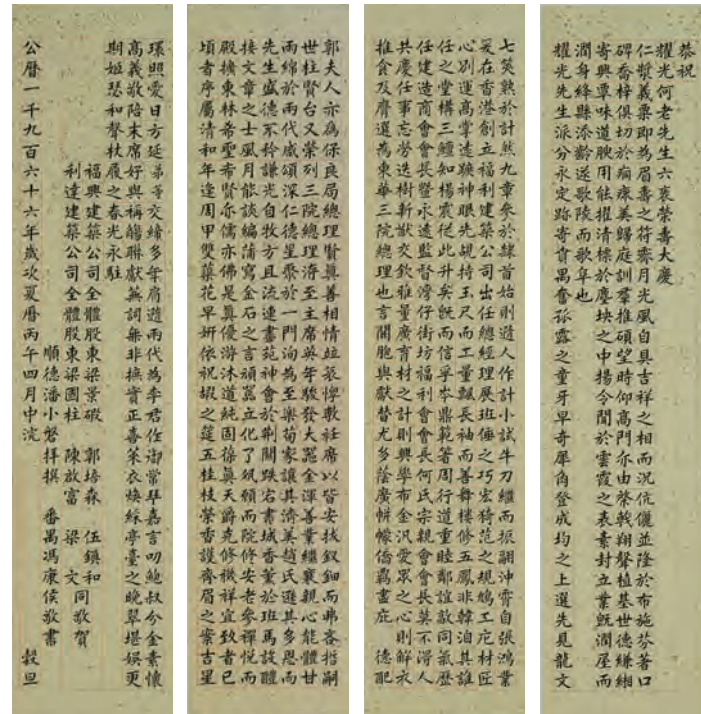 恭祝
耀光何老先生六袠榮壽大慶
仁漿義粟即為眉壽之符霽月光風自具吉祥之相而況伉儷並隆於布施芬著口
碑喬梓俱切於痌瘝美歸庭訓羣推碩望時仰高門亦由棨戟翔聲植基世德縑緗
寄興覃味道腴用能擢清標於塵埃之中揚令聞於雲霞之表素封立業既潤屋而
潤身絳縣添齡遂歌陵而歌阜也
耀光先生派分永定跡寄賁禺奮孤露之童牙早奇犀角登成均之上選先見龍文
七筴熟於計然九章參於隸首始則遊人作計小試牛刀繼而振翮沖霄自張鴻業
爰在香港創立福利建築公司出任總經理展班倕之巧宏猗范之規鳩工庀材匠
心別運高掌遠蹠神眼先覘持玉尺而工量飄長袖而善舞樓修五鳳非韓洎其誰
任之堂構三鱣知楊震從此升矣既而信孚岑鼎範著周行道重睦鄰誼敦同氣歷
任建造商會會長暨永遠監督灣仔街坊福利會會長何氏宗親會會長莫不得人
共慶任事忘勞迭樹新猷交欽雅量廣育材之計則興學布金汎愛眾之心則解衣
推食及膺選為東華三院總理也言關胞與獻替尤多蔭廣帡幪僑羈盡庇　德配
郭夫人亦為保良局總理賢真善相情竝裒惸斁衽席以皆安拔釵鈿而弗吝哲嗣
世柱賢台又榮列三院總理洊至主席英年駿發大器金渾善業繼裘親心能體甘
雨綿於兩代咸頌深仁德星聚於一門洵為至樂荀家讓其濟美趙氏遜其多恩而
先生盛德不矜謙光自牧方且流連書苑神會於荆關跌宕書城香薰於班馬設醴
接文章之士風月能談編蒲寫金石之言頑嚚立化了夙願而院修安老參禪悅而
殿擴東林希聖希賢亦儒亦佛是真優游沐道純固葆真天爵克修機祥宜致者已
頃者序屬清和年逢周甲雙蕖花早妍依祝嘏之筵五桂枝榮香護齊眉之案吉星
環照愛日方延弟等交締多年肩遊兩代為李君在御常聆嘉言叨鮑叔分金素懷
高義敬陪末席好與稱觴聯獻蕪詞無非摭實正喜萊衣煥綵亭臺之晚翠堪娛更
期姬瑟和聲杖履之春光永駐
福興建築公司全體股東梁景嘏　郭培森　伍鎮和
利達建築公司全體股東梁國柱　陳放富　梁文　同敬賀
順德潘小磐拜撰　番禺馮康侯敬書
公曆一千九百六十六年歲次夏曆丙午四月中浣　穀旦